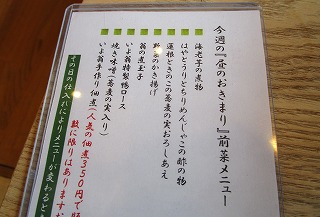 今週の『昼のおきまり』前菜メニュー
海老芋の煮物
はやとうりとちりめんじゃこの酢の物
蓮根ときのこの蕎麦の実おろしあえ
野菜のかき揚げ
翁の煮玉子
いよ翁特製鴨ロース
焼き味噌(蕎麦の実入り)
いよ翁手作り佃煮(人気の佃煮350円で販
数に限りはありますが
その日の仕入れによりメニューが変わるとき